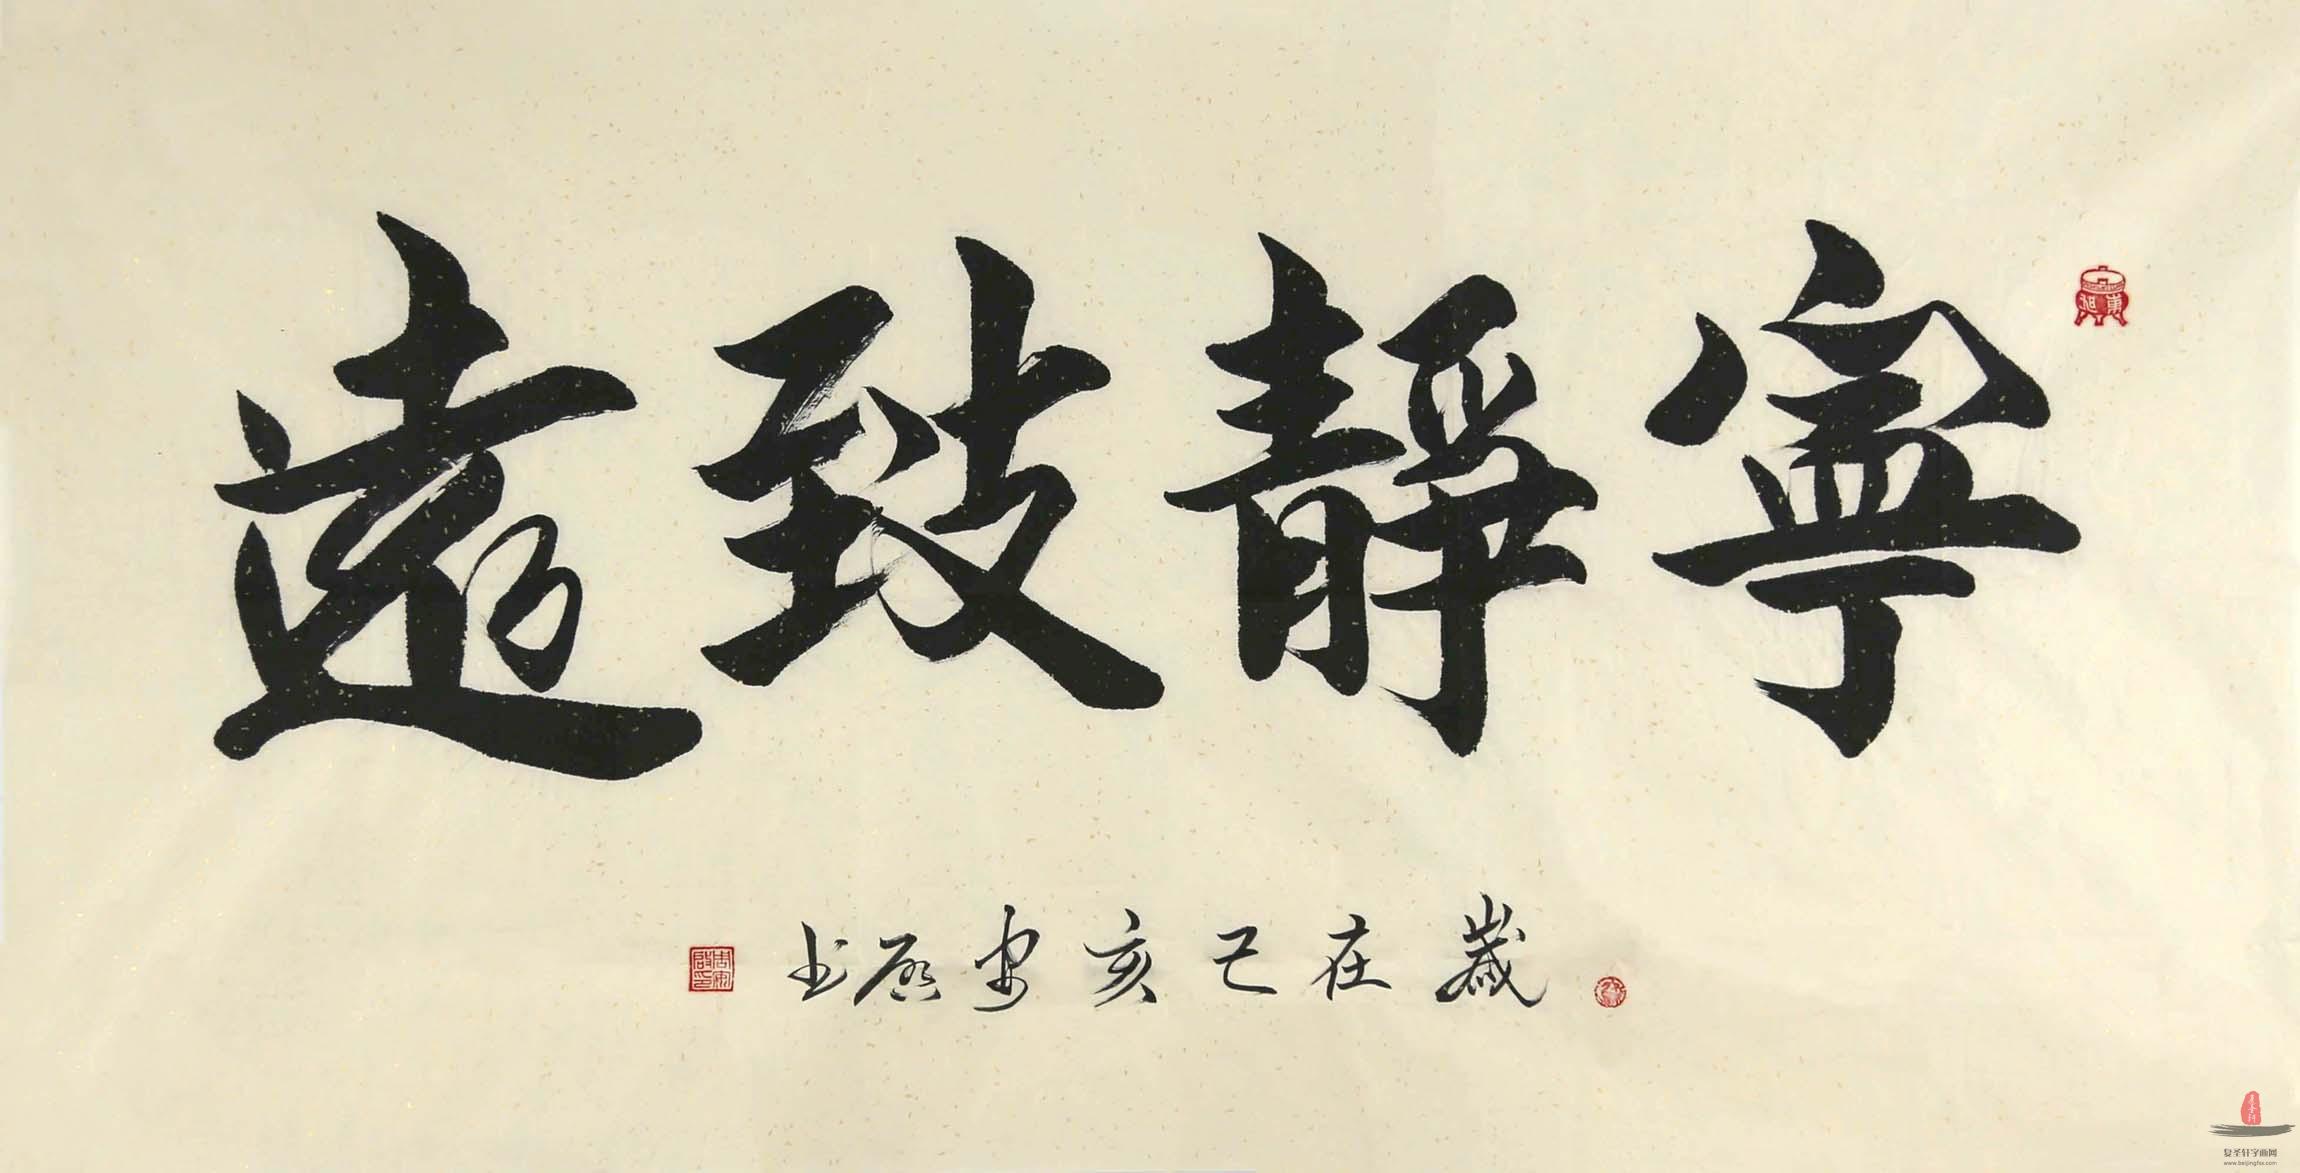 寧靜致遠
歲在己亥 安啟书
复圣轩字画网
www.beijingfsx.com